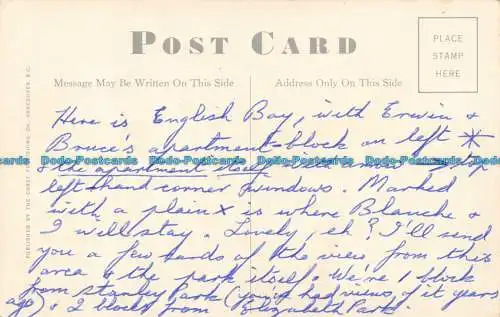 POST CARD
PLACE
STAMP
HERE
Message May Be Written On This Side
Address Only On This Side
Here is English Bay, with Erwin &
Bruce's apartment-block on left *
& the apartment itself top
left hand corner windows. Marked
with a plain x is where Blanche &
I will stay. Lovely, eh? I'll send
you a few cards of the view from this
area & the park itself. We're 1 block
from Stanley Park (you've had views of it years
ago) & 2 blocks from Elizabeth Park.
Dodo-Postcards Dodo-Postcards Dodo-Postcards Dodo-Postcards Dodo-Postcards